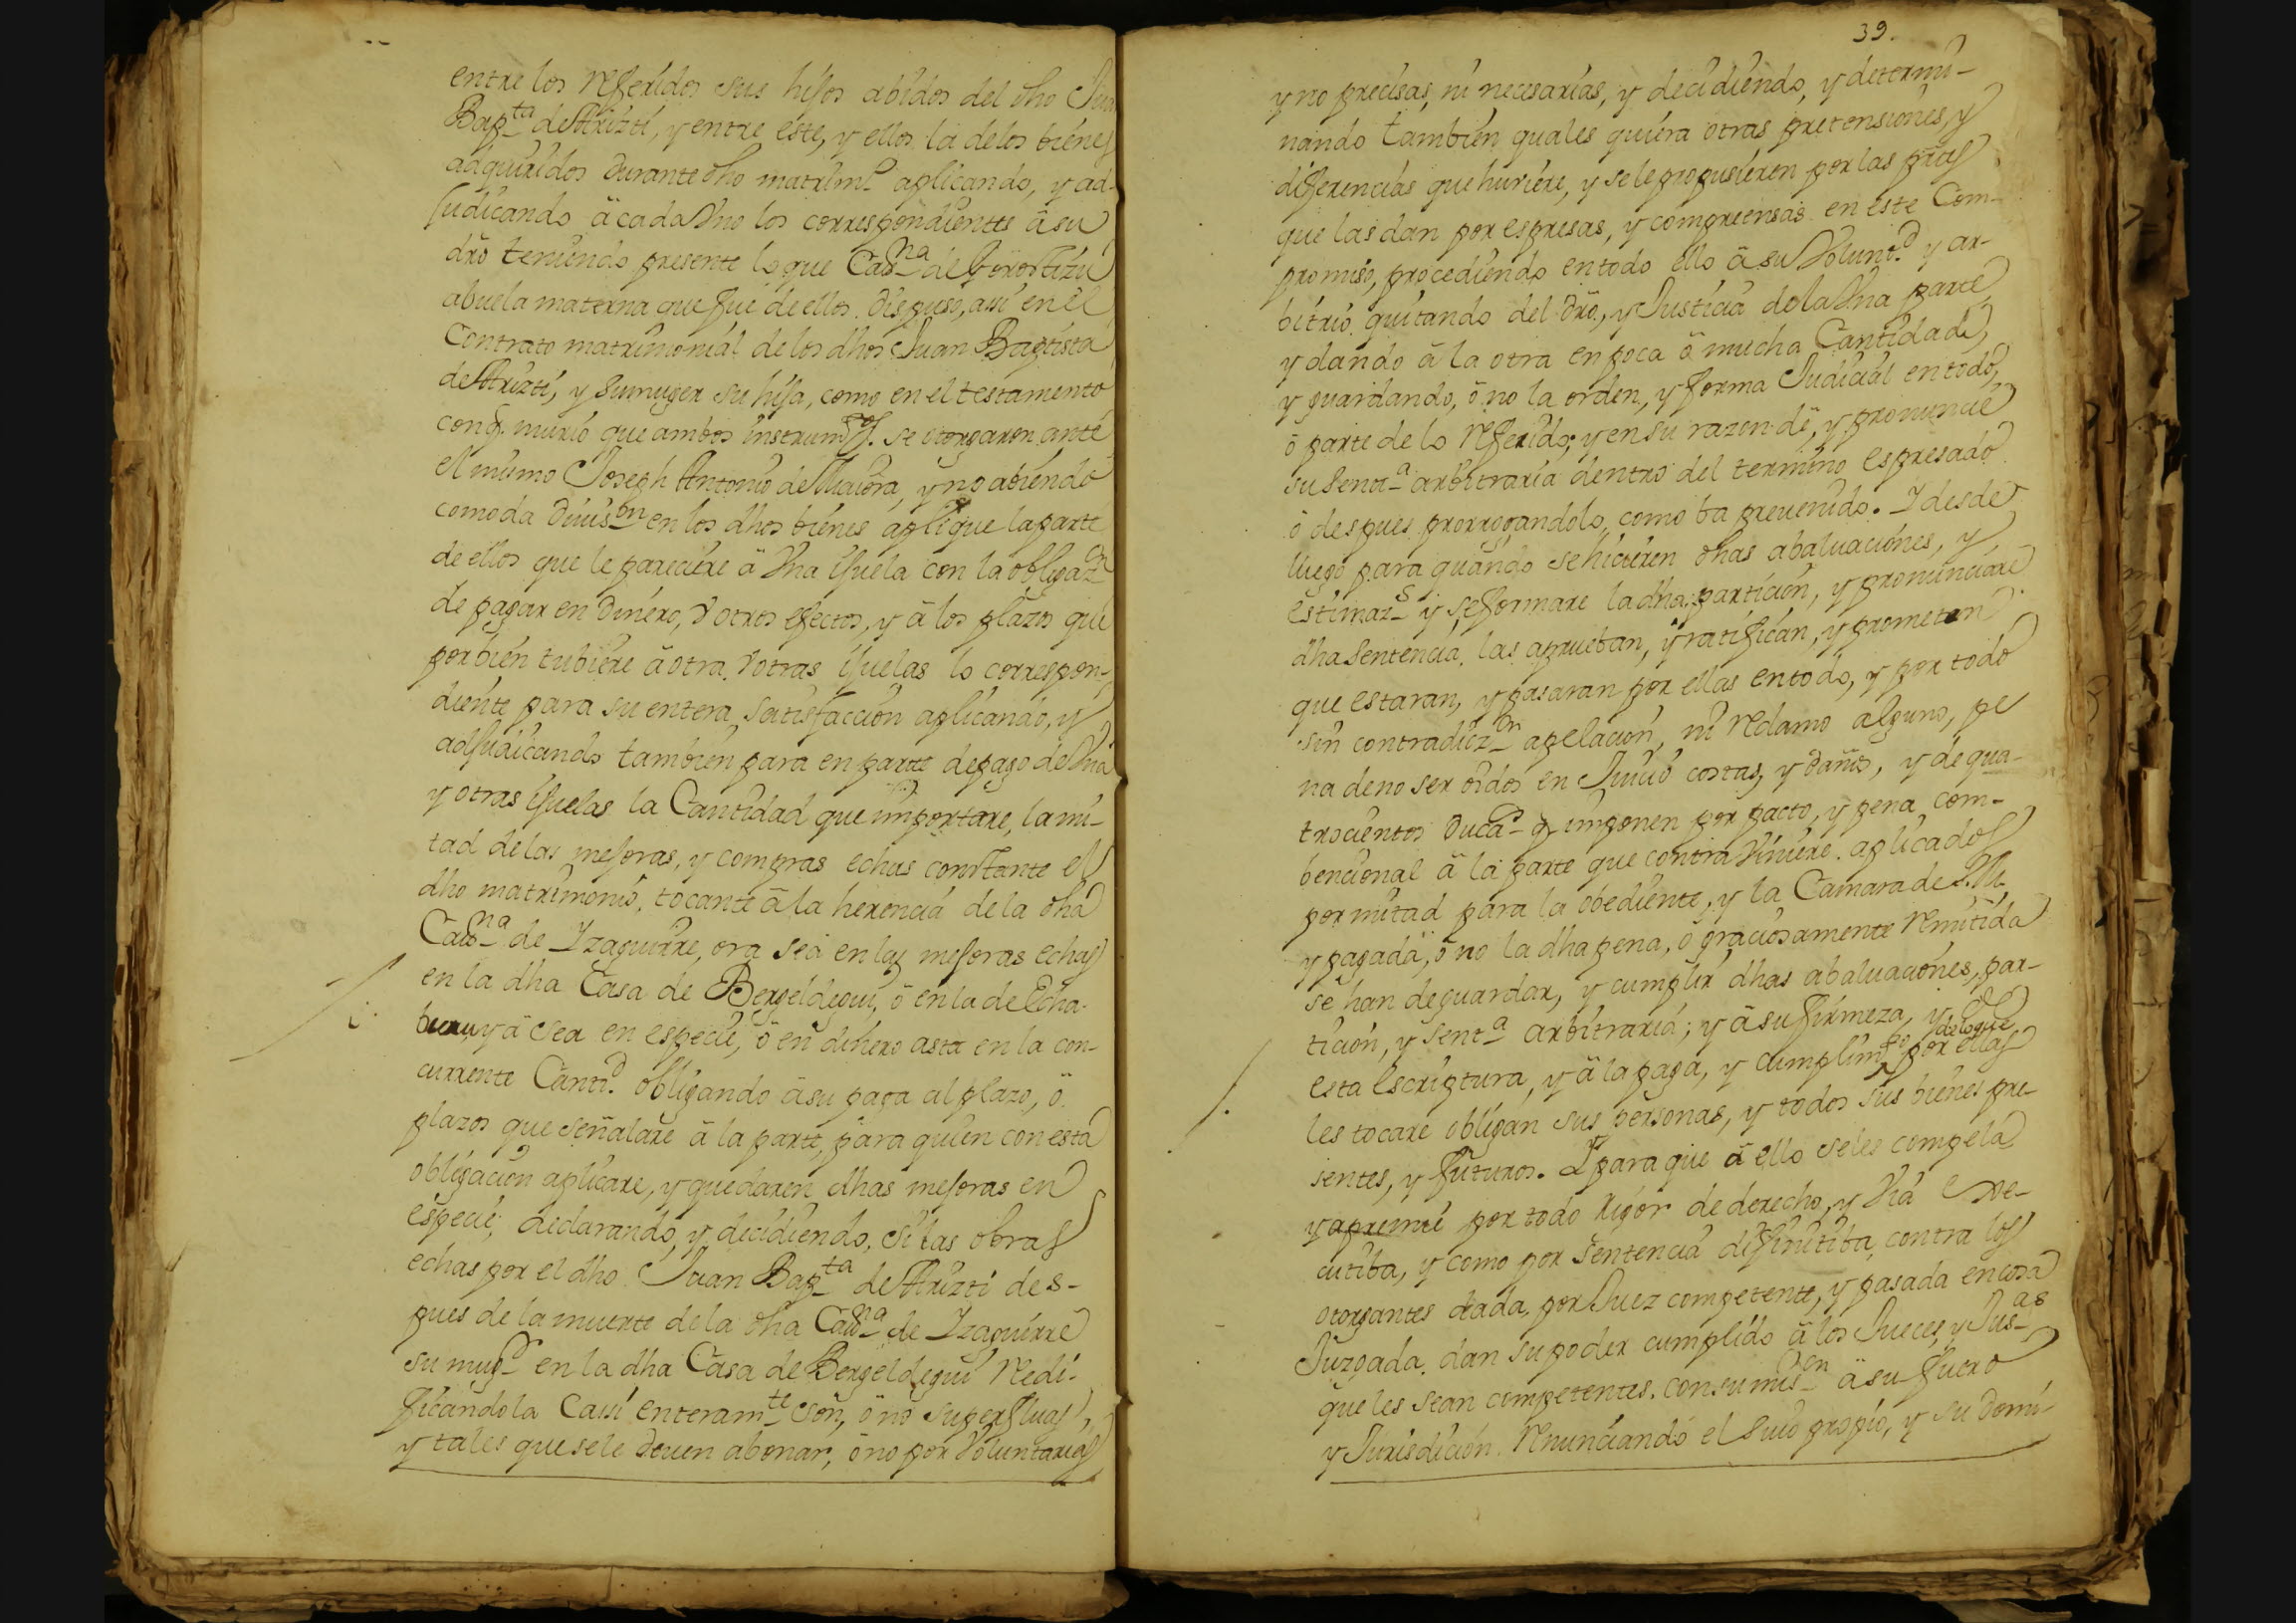 entre los referidos sus hijos abidos del dho Juan
Bap.ta de Arizti, y entre éste, y ellos la de los bienes
adquiridos durante dho matrim.o aplicando, y ad-
judicando à cada Vno los correspondientes à su
dro teniendo presente lo que Cath.na de Gorostizu
abuela materna que fue de ellos dispuso, assi en el
Contrato matrimonial de los dhos Juan Baptista
de Arizti, y su muger su hija, como en el testamento
con q. murio que ambos instrum.tos se otorgaron ante
el mismo Joseph Antonio de Maiora, y no abiendo
comoda Diuis.on en los dhos bienes aplique la parte
de ellos que le pareciere à Vna ijuela con la obligaz.on
de pagar en Dinero, V otros efectos, y à los plazos que
por bien tubiere à otra, V otras ijuelas lo correspon-
diente para su entera satisfaccion aplicando, y
adjudicando tambien para en parte de pago de Vna
y otras ijuelas la Cantidad que importare, la mi-
tad de las mejoras, y compras echas constante el
dho matrimonio, tocante à la herencia de la dha
Cath.na de Izaguirre, ora sea en las mejoras echas
en la dha Casa de Bergeldegui, ò en la de Echa-
buru, y à sea en especie, ò en dinero asta en la con-
currente Cantid. obligando à su paga al plazo, ò
plazos que señalare à la parte, para quien con esta
obligacion aplicare, y quedaren dhas mejoras en
especie, declarando, y decidiendo, si las obras
echas por el dho Juan Bap.ta de Arizti des-
pues de la muerte de la dha Cath.na de Izaguirre
su mug.r en la dha Casa de Bergeldegui redi-
ficandola cassi enteram.te son, ò no superfluas,
y tales que se le deuen abonar, ò no por Voluntarias
39.
y no precisas, ni necesarias, y decidiendo, y determi-
nando tambien quales quiera otras pretensiones, y
diferencias que huviere, y se le propusieren por las ptes
que las dan por espresas, y compriensas en este Com-
promiso, procediendo en todo ello à su Volunt.d y ar-
bitrio quitando del dro, y Justicia de la Vna parte
y dando à la otra en poca ò mucha Cantidad,
y guardando, ò no la orden, y forma Judicial en todo,
ò parte de lo referido; y en su razon dè, y pronuncie
su Sent.a arbitraria dentro del termino espresado
ò despues prorrogandolo, como ba preuenido. I desde
luego para quando se hicieren dhas abaluaciones, y
estimaz.s y se formare la dha particion, y pronunciare
dha Sentencia, las aprueban, y ratifican, y prometen
que estaran, y pasaran por ellas en todo, y por todo
sin contradicz.on apelacion, ni reclamo alguno, pe
na de no ser oidos en Juicio costas, y daños, y de qua-
trocientos Duca.s q. imponen por pacto, y pena com-
bencional à la parte que contra Viniere aplicados
por mitad para la obediente, y la Camara de S. M.
y pagada, ò no la dha pena, ò graciosamente remitida
se han de guardar, y cumplir dhas abaluaciones, par-
ticion, y sent.a arbitraria; y à su firmeza, y de
esta escriptura, y à la paga, y cumplim.to de lo que por ellas
les tocare obligan sus personas, y todos sus bienes pre-
sentes, y futuros. I para que à ello se les compela
y apremie por todo rigor de derecho, y Via exe-
cutiba, y como por sentencia difinitiba contra los
otorgantes dada, por Juez competente, y pasada en cosa
Juzgada, dan su poder cumplido à los Jueces, y Jus.as
que les sean competentes, con sumis.on à su fuero
y Jurisdicion renunciando el suio propio, y su Domi-